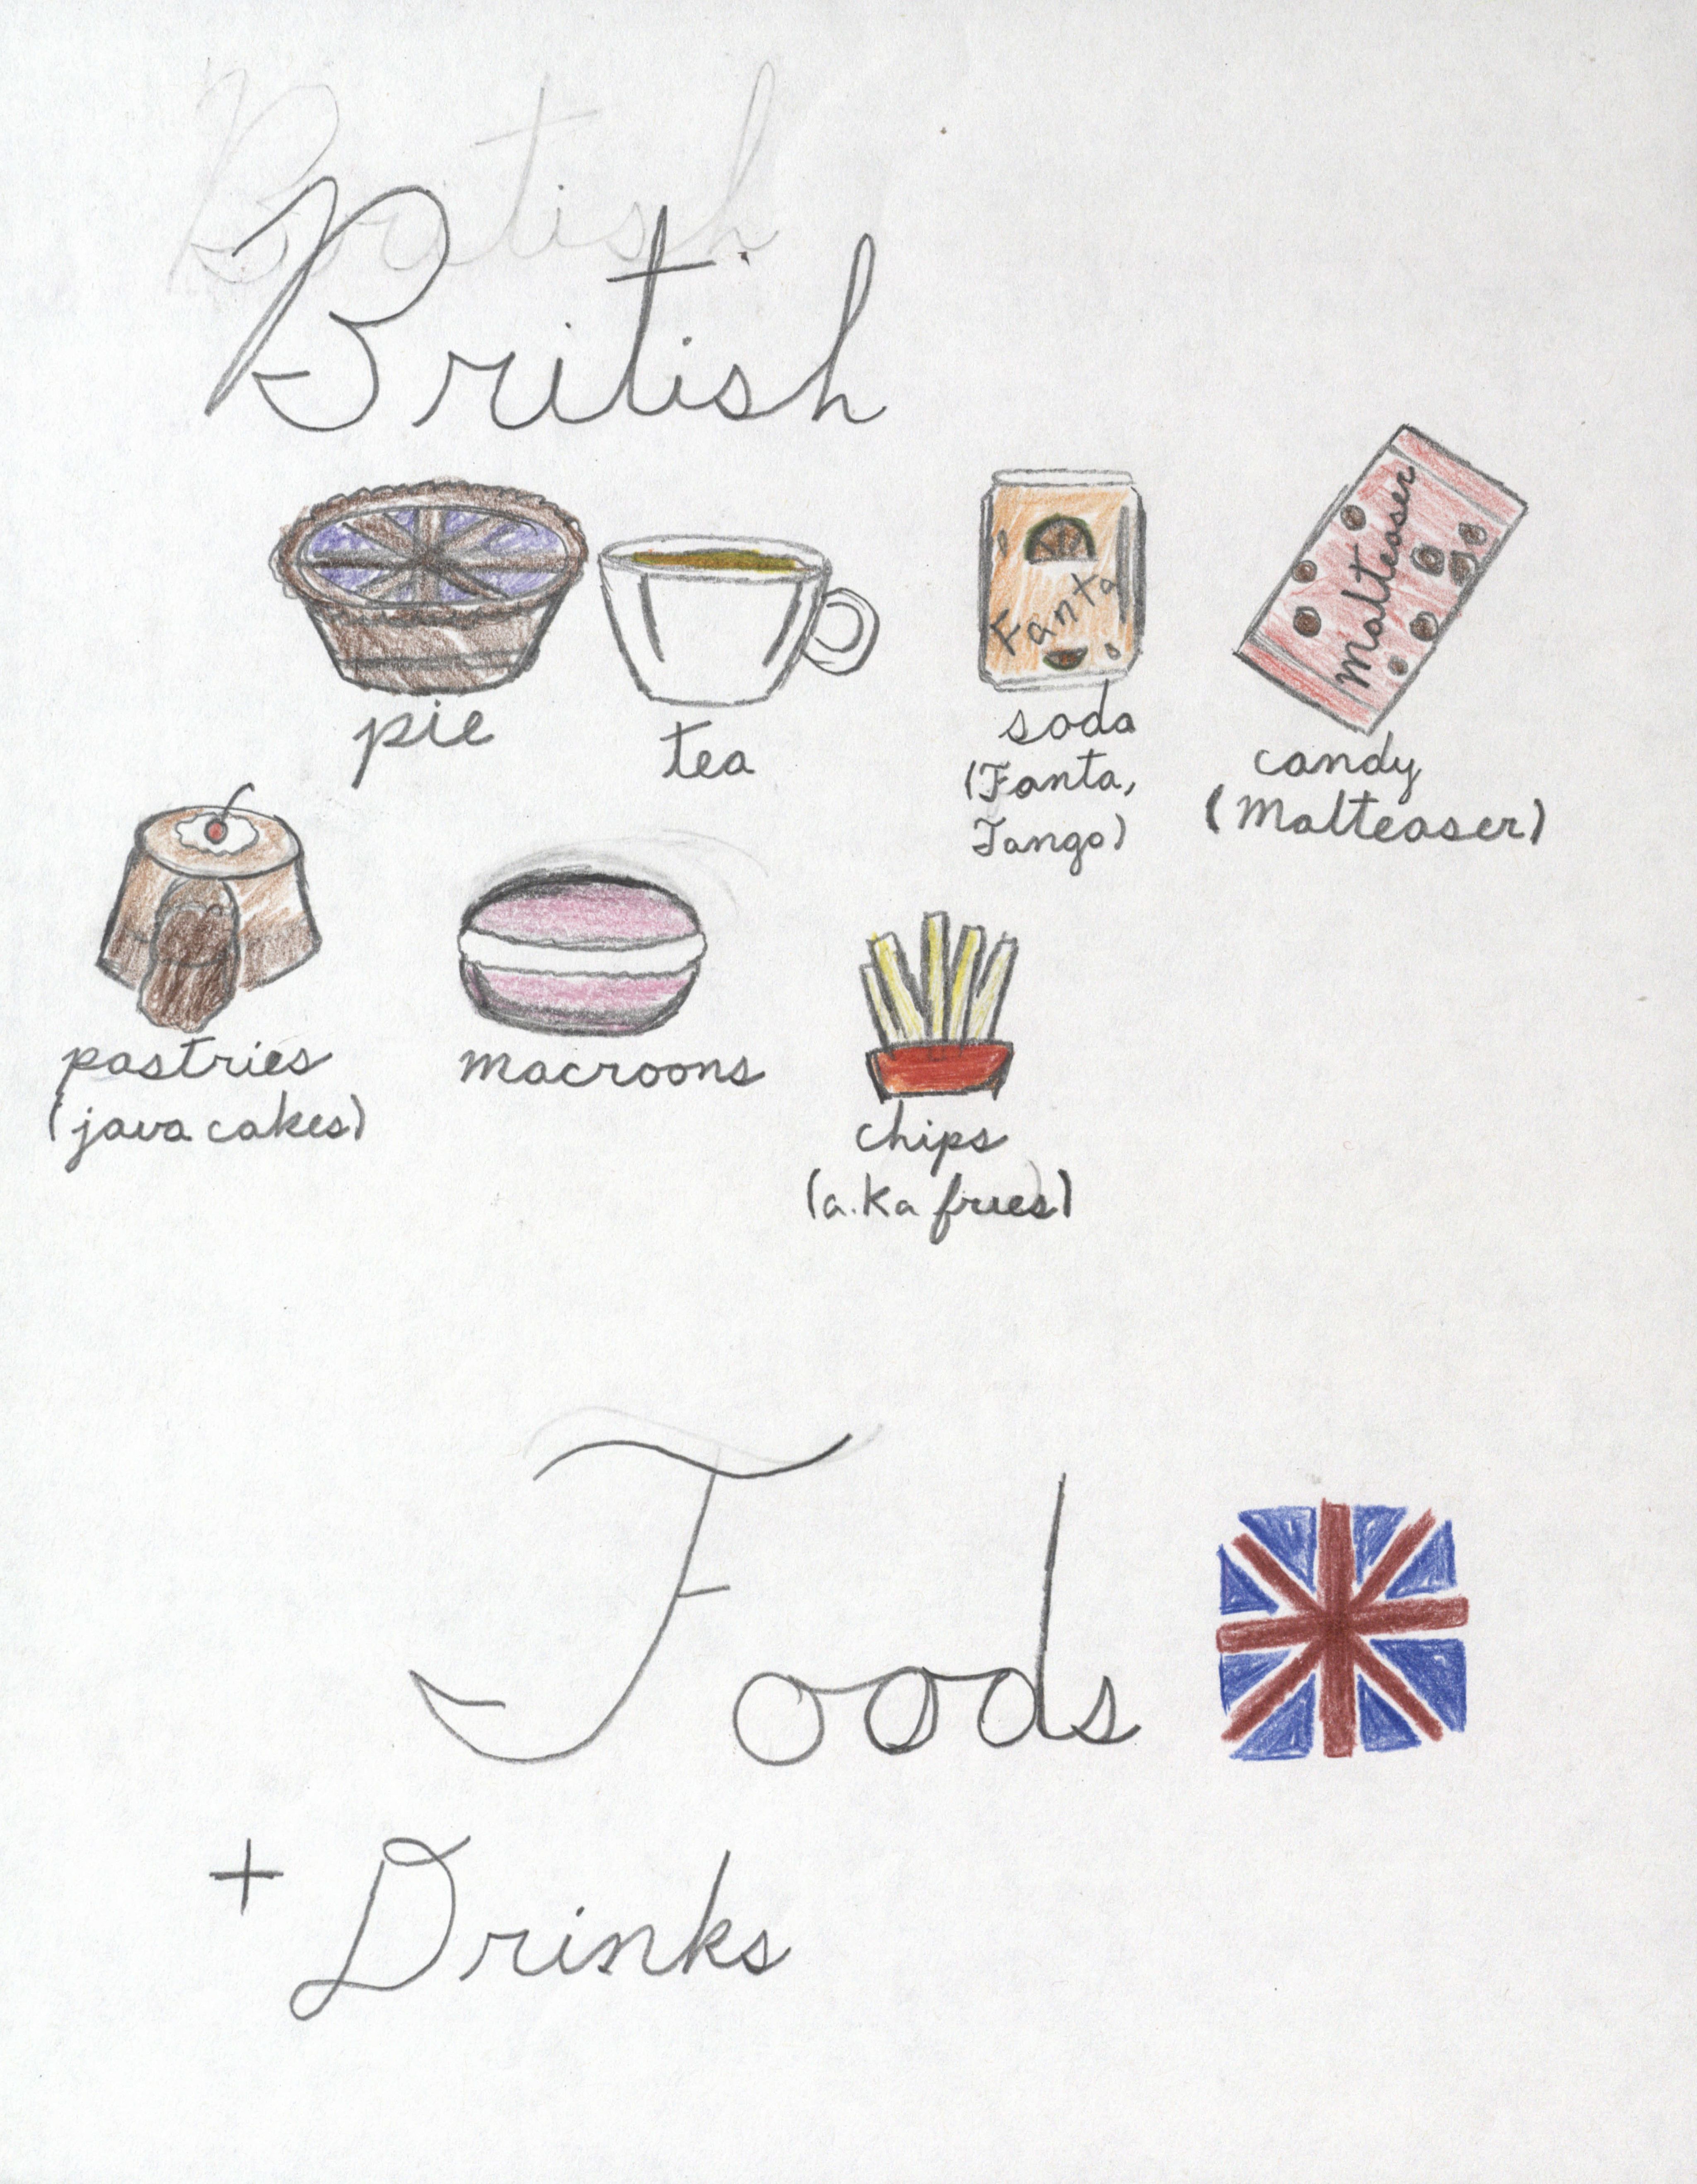 British
British
Fanta
Malteaser
pie
tea
soda
(Fanta,
Tango)
candy
(Malteaser)
pastries
(java cakes)
macroons
chips
(a.ka fries)
Foods
+ Drinks